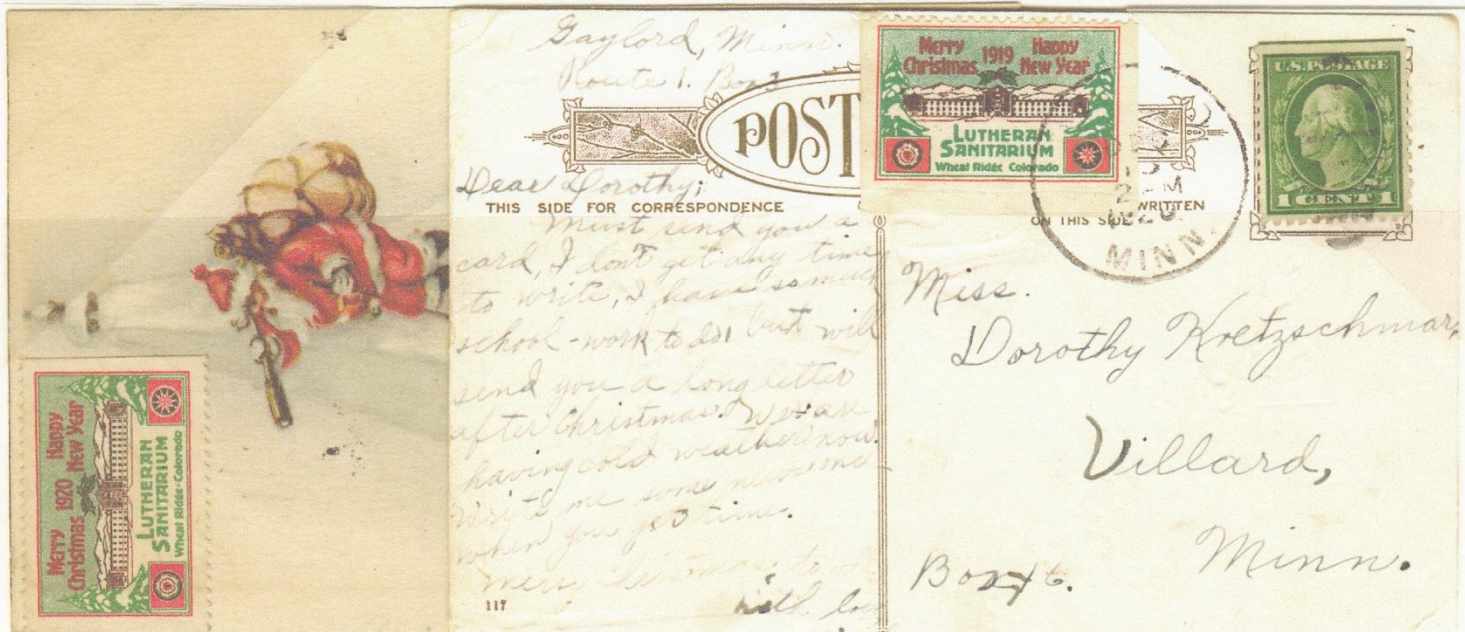 Merry 1920 Happy
Christmas New Year
LUTHERAN
SANITARIUM
Wheat Ridge · Colorado
Gaylord, Minn.
Route 1. Box
POST
Merry 1919 Happy
Christmas New Year
LUTHERAN
SANITARIUM
Wheat Ridge Colorado
U.S. POSTAGE
1 CENT 1
MINN.
Dear Dorothy;
THIS SIDE FOR CORRESPONDENCE
WRITTEN
ON THIS SIDE
Must send you a
card, I don't get any time
to write, I have so much
school-work to do, but will
send you a long letter
after Christmas. We are
having cold weather now.
Write me some news
when you get time.
Christmas to
117
Miss.
Dorothy Kretzschmar,
Villard,
Minn.
Box 6.